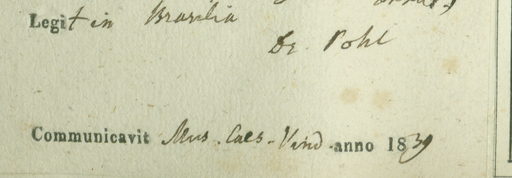 Legit in Brasilia
Dr. Pohl
Communicavit Mus. Caes. Vind. anno 1839